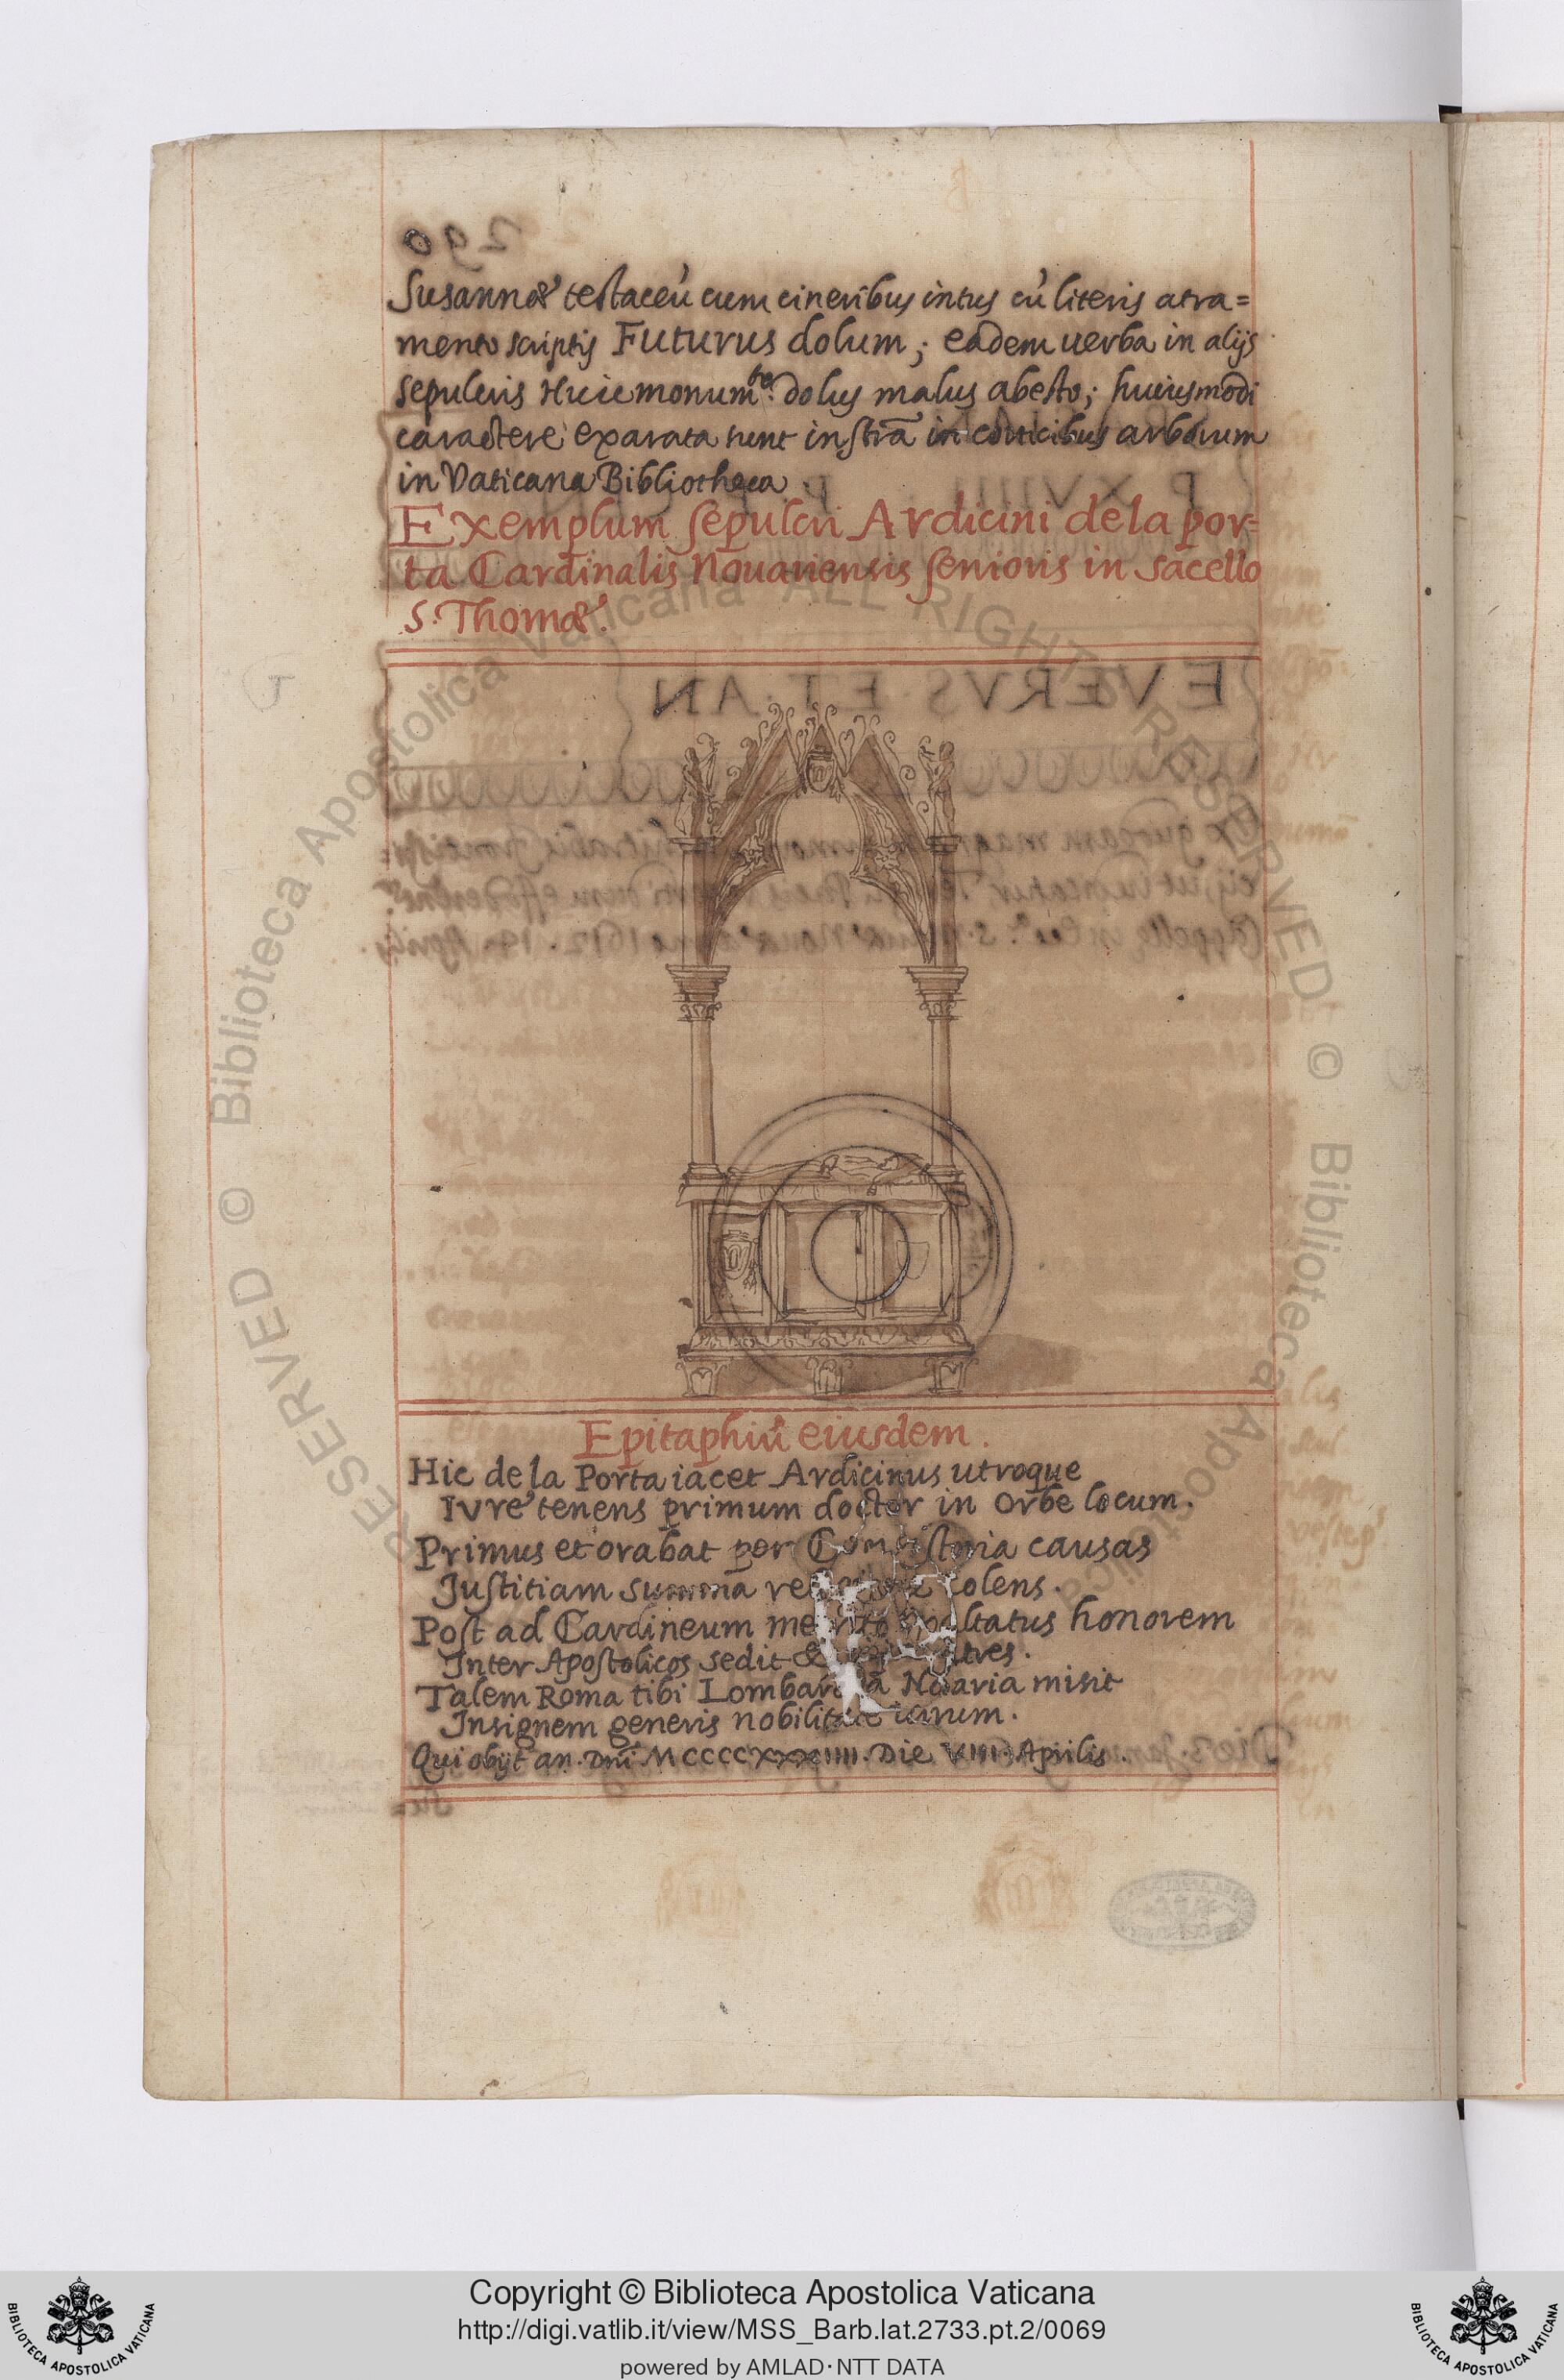 Susannæ testaceũ cum cineribus intus cũ literis atra=
mento scriptis Futurus dolum; eadem uerba in alijs
sepulcris Huic monumᵗᵒ. dolus malus abesto; huiusmodi
caractere exarata sunt instrã in corticibus arborum
in Vaticana Bibliotheca.
Exemplum sepulcri Ardicini de la por-
ta Cardinalis Nouariensis senioris in sacello
S. Thomæ.
Epitaphiũ eiusdem.
Hic de la Porta iacet Ardicinus utroque
Iure tenens primum doctor in Orbe locum.
Primus et orabat per Consistoria causas
Justitiam summa colens.
Post ad Cardineum merito honorem
Inter Apostolicos sedit
Talem Roma tibi Lombarda Nouaria misit
Insignem generis nobilitate uirum.
Qui obijt an. Dnĩ MCCCCXXXIIII. Die VIIII. Aprilis.
Copyright © Biblioteca Apostolica Vaticana
http://digi.vatlib.it/view/MSS_Barb.lat.2733.pt.2/0069
powered by AMLAD·NTT DATA
BIBLIOTECA APOSTOLICA VATICANA
BIBLIOTECA APOSTOLICA VATICANA